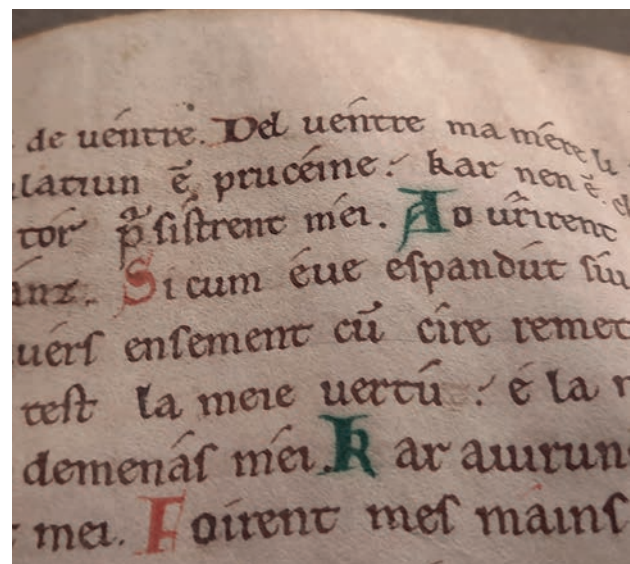 de uéntre. Del uentre ma mére li
latiun ē prucéine : kar nen ē.
tor p̄sistrent méi. Ao uřirent
anz. Sicum éue espandút siu
uérs ensement cū cire remet
test la meie uertú : é la
demenás méi. Kar auirun
mei. Foirent mes máins